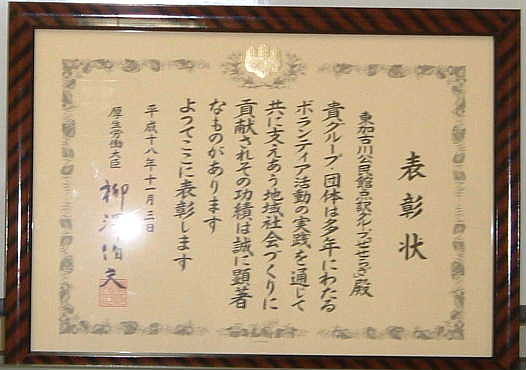 表彰状
東加古川公民館点訳グループせせらぎ殿
貴グループ団体は多年にわたる
ボランティア活動の実践を通じて
共に支えあう地域社会づくりに
貢献されその功績は誠に顕著
なものがあります
よってここに表彰します
平成十八年十一月三日
厚生労働大臣
柳澤伯夫